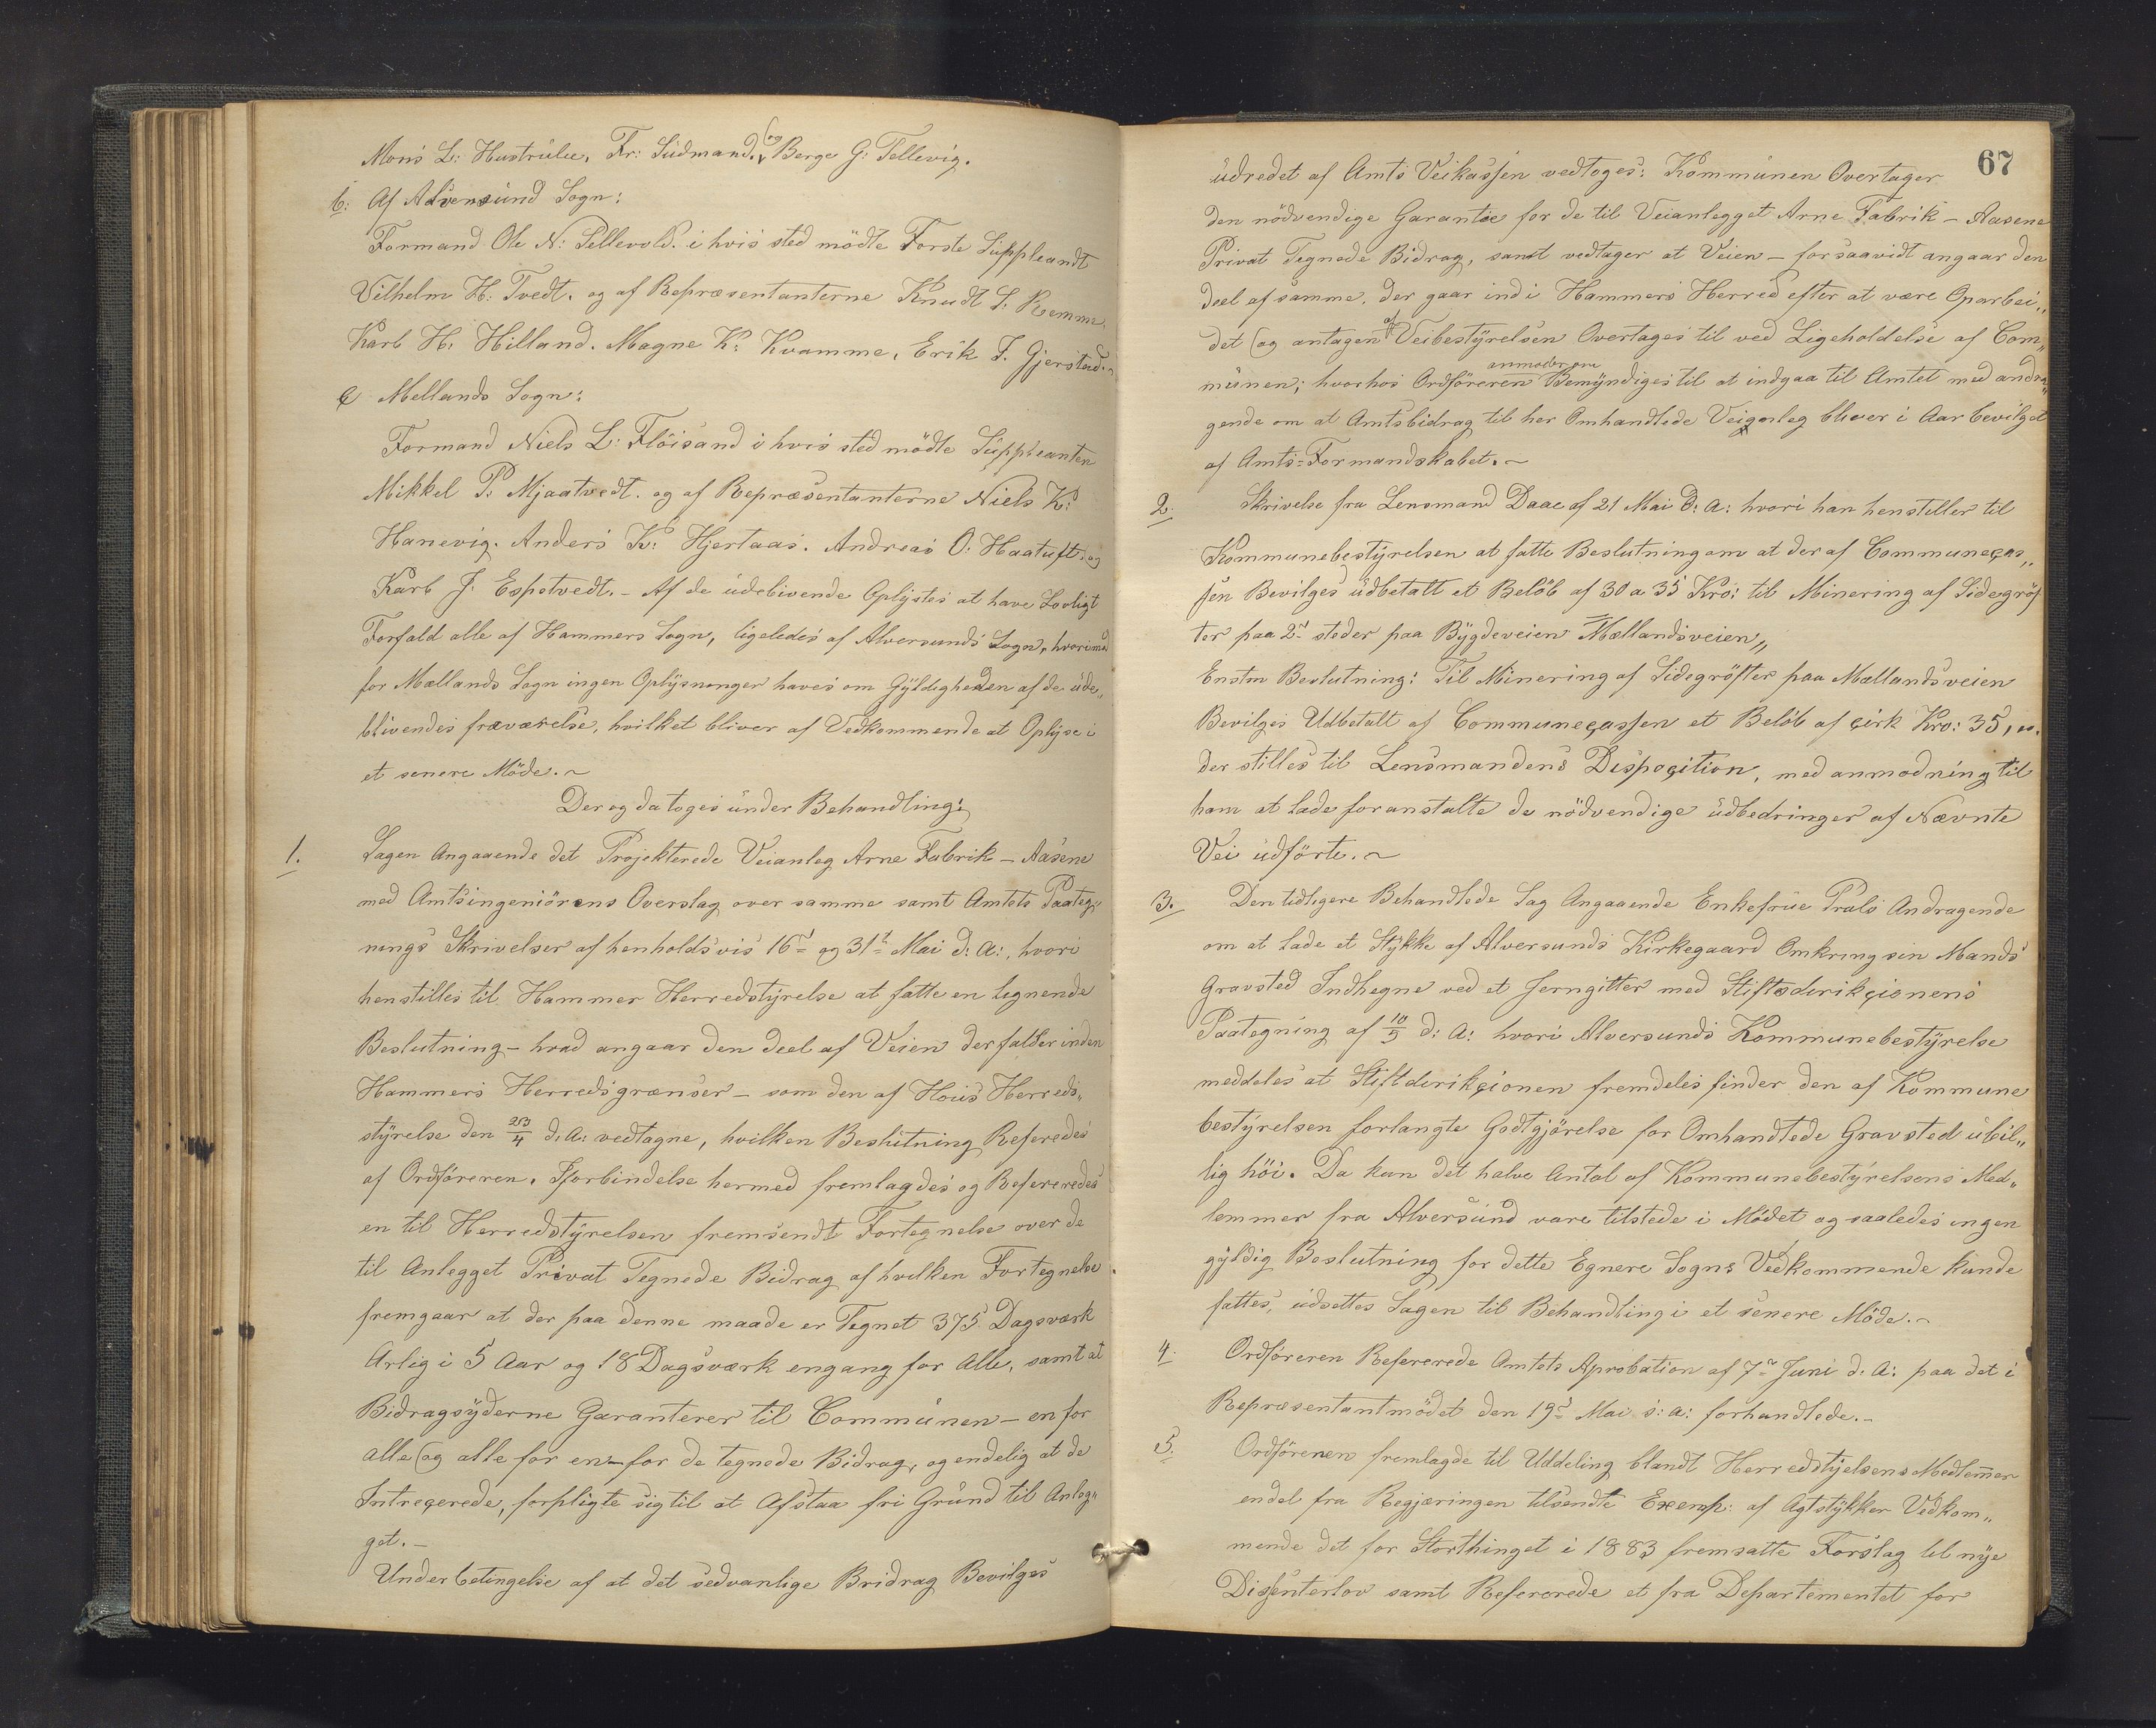 Mons L: Hustrulie, Fr: Sudmand. og Berge G: Tellevig.
b: Af Alversund Sogn:
Formand Ole N: Sellevold. i hvis sted mödte Forste Suppleandt
Vilhelm H. Tvedt. og af Repræsentanterne Knudt S. Remme,
Karl H. Hilland. Magne K: Kvamme, Erik J. Gjerstad.~
c Mellands Sogn:
Formand Niels L: Flöisand i hvis sted mödte Suppleanten
Mikkel P. Mjaatvedt. og af Repræsentanterne Niels K:
Hanevig. Anders K: Hjertaas. Andreas O. Haatuft. og
Karl J. Espetvedt. - Af de udebivende Oplystes at have Lovligt
Forfald alle af Hammers Sogn, ligeledes af Alversunds Sogn, hvorimod
for Mællands Sogn ingen Oplysninger haves om Gyldigheden af de ude„
blivendes fraværelse, hvilket bliver af Vedkommende at Oplyse i
et senere Möde.~
Der og da toges under Behandling:
1. Sagen Angaaende det Projekterede Veianleg Arne Fabrik - Aasene
med Amtsingeniörens Overslag over samme samt Amtets Paateg„
nings Skrivelser af henholdsvis 16d og 31t Mai d: A:, hvori
henstilles til Hammer Herredstyrelse at fatte en lignende
Beslutning - hvad angaar den deel af Veien der falder inden
Hammers Herredsgrænser - som den af Hous Herreds„
styrelse den 23/4 d. A: vedtagne, hvilken Beslutning Referedes
af Ordföreren. Iforbindelse hermed fremlagdes og Refereredes
en til Herredstyrelsen fremsendt Fortegnelse over de
til Anlegget Privat Tegnede Bidrag af hvilken Fortegnelse
fremgaar at der paa denne maade er Tegnet 375 Dagsværk
Arlig i 5 Aar og 18 Dagsværk engang for Alle, samt at
Bidragsyderne Garanterer til Communen - en for
alle og alle for en - for de tegnede Bidrag, og endelig at de
Intreçerede, forpligte sig til at Afstaa fri Grund til Anleg„
get. -
Under betingelse af at det sedvanlige Bridrag Bevilges
67
udredet af Amts Veikassen vedtoges: Kommunen Overtager
den nödvendige Garantie for de til Veianlegget Arne Fabrik - Aasene
Privat Tegnede Bidrag, samt vedtager at Veien - forsaavidt angaar den
deel af samme, der gaar ind i Hammers Herred efter at være Oparbei„
det og antagen af Veibestyrelsen Overtages til ved Ligeholdelse af Com„
munen; hvorhos Ordföreren anmodes om Bemyndiges til at indgaa til Amtet med andra„
gende om at Amtsbidrag til her Omhandlede Veianleg bliver i Aar bevilget
af Amts-Formandskabet.~
2. Skrivelse fra Lensmand Daae af 21 Mai d: A: hvori han henstiller til
Kommunebestyrelsen at fatte Beslutning om at der af Communeças„
sen Bevilges udbetalt et Belöb af 30 a 35 Kro: til Minering af Sidegröf
ter paa 2de steder paa Bygdeveien "Mællandsveien„
Enstm Beslutning: Til Minering af Sidegröfter paa Mællandsveien
Bevilges Udbetalt af Communeçassen et Belöb af çirk Kro: 35,00.
der stilles til Lensmandens Dispoçition, med anmodning til
ham at lade foranstalte de nödvendige udbedringer af Nævnte
Vei udförte.~
3. Den tidligere Behandlede Sag Angaaende Enkefrue Prals Andragende
om at lade et Stykke af Alversunds Kirkegaard Omkring sin Mands
Gravsted Indhegne ved et Jerngitter med Stiftsdirikçionens
Paategning af 10/5 d: A: hvori Alversunds Kommunebestyrelse
meddeles at Stiftdirikçionen fremdeles finder den af Kommune
bestyrelsen forlangte Godtgjörelse for Omhandlede Gravsted ubil„
lig höi. Da kun det halve Antal af Kommunebestyrelsens Med„
lemmer fra Alversund vare tilstede i Mödet og saaledes ingen
gyldig Beslutning for dette Egnere Sogns Vedkommende kunde
fattes, udsettes Sagen til Behandling i et senere Möde.~
4. Ordföreren Refererede Amtets Aprobation af 7de Juni d. A: paa det i
Repræsentantmödet den 19d Mai s: a: forhandlede.-
5. Ordföreren fremlagde til Uddeling blandt Herredstyelsens Medlemmer
endel fra Regjæringen tilsendte Exemp: af Agtstykker Vedkom„
mende det for Storthinget i 1883 fremsatte Forslag til nye
Dissenterlov samt Refererede et fra Departementet for